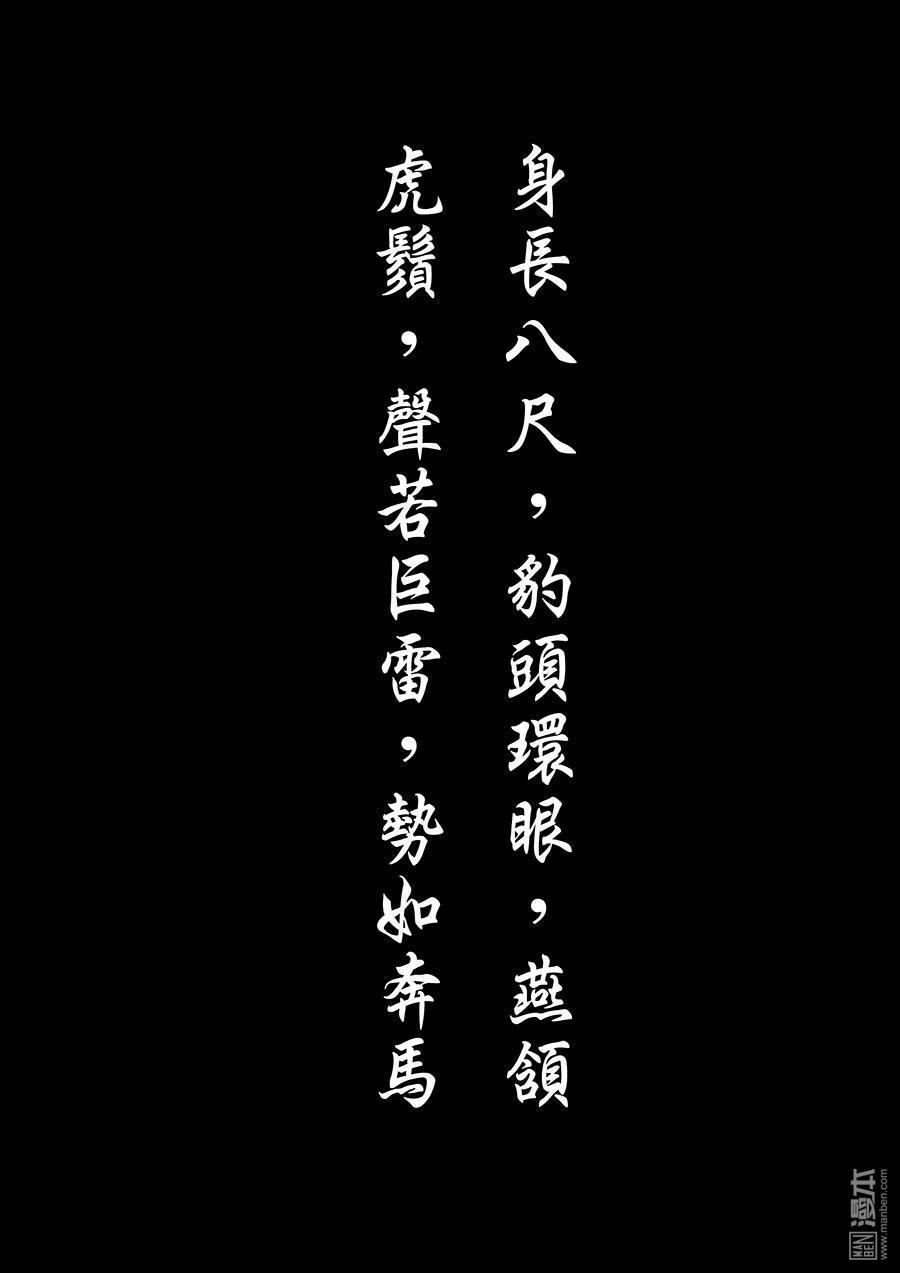 身長八尺，豹頭環眼，燕頷
虎鬚，聲若巨雷，勢如奔馬
漫本
MAN
BEN
www.manben.com